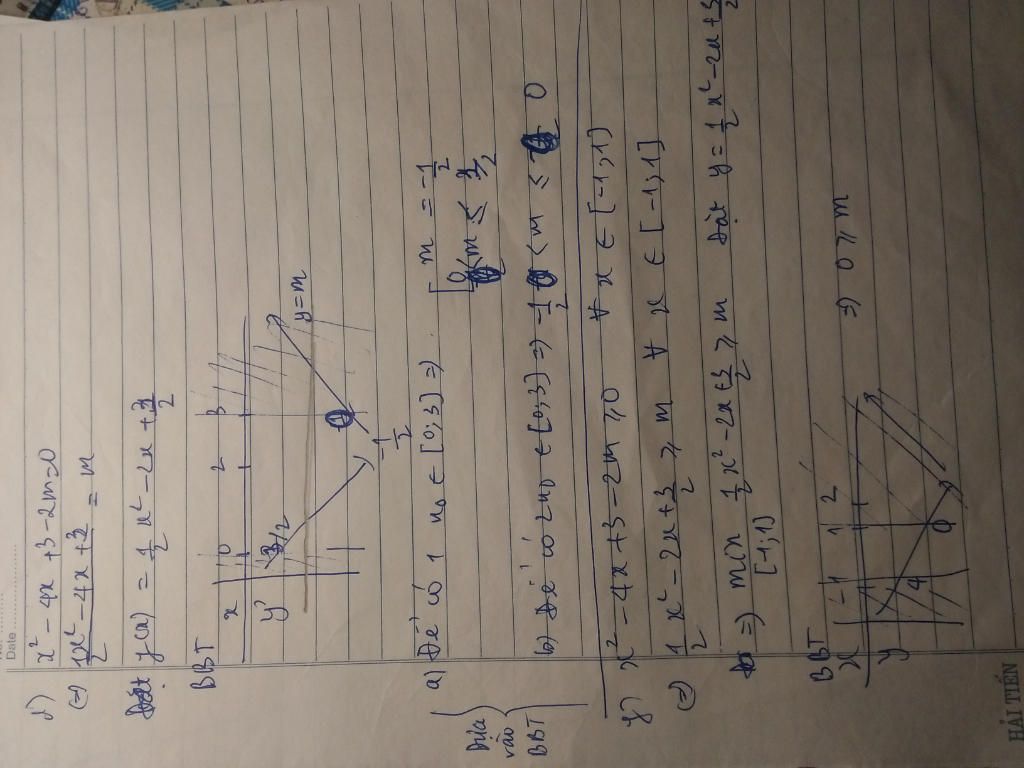 Date
8) x² - 4x + 3 - 2m = 0
(=) 1x² - 4x + 3 / 2 = m
Đặt y(x) = 1/2 x² - 2x + 3/2
BBT
x 0 2 3
y 3/2 -1/2 0 y = m
Dựa vào BBT
a) Để có 1 n₀ ∈ [0;3] => [ m = -1/2
0 < m ≤ 3/2
b) Để có 2n₀ ∈ [0;3] => -1/2 < m ≤ 0
8) x² - 4x + 3 - 2m ≥ 0 ∀ x ∈ [-1;1]
(=) 1/2 x² - 2x + 3/2 ≥ m ∀ x ∈ [-1;1]
=> min 1/2 x² - 2x + 3/2 ≥ m Đặt y = 1/2 x² - 2x + 3/2
[-1;1]
BBT
x -1 1 2
y 4 0 => 0 ≥ m
HẢI TIẾN